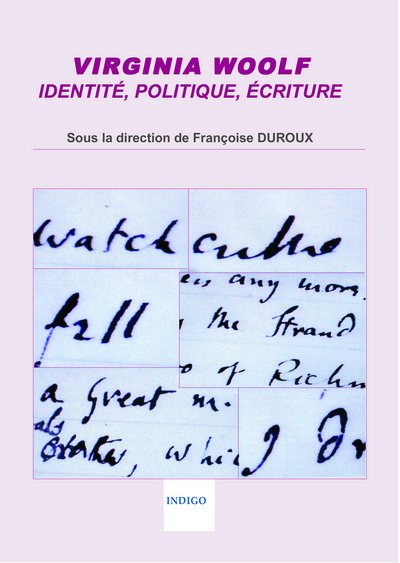 VIRGINIA WOOLF
IDENTITÉ, POLITIQUE, ÉCRITURE
Sous la direction de Françoise DUROUX
watch
fell
any more,
the Strand
of Richm
a great m.
als
whic
I
INDIGO